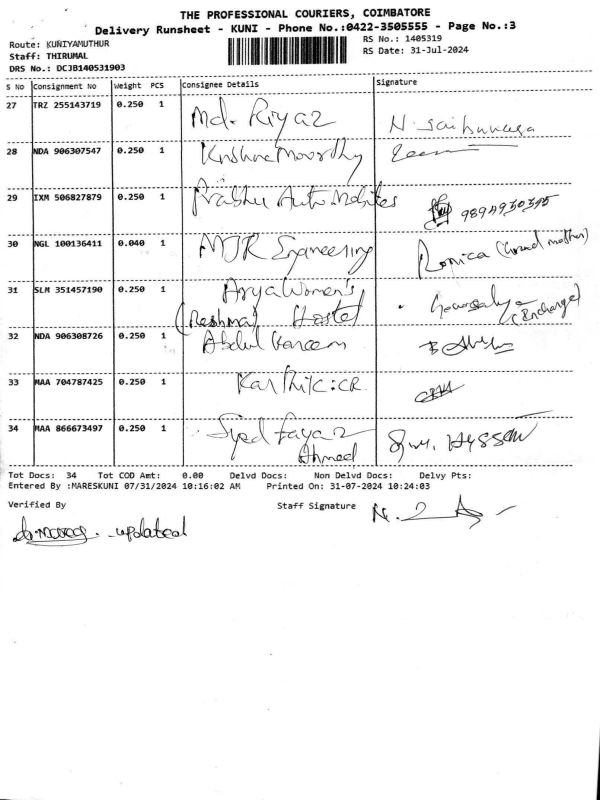 THE PROFESSIONAL COURIERS, COIMBATORE
Delivery Runsheet - KUNI - Phone No.:0422-3505555 - Page No.:3
Route: KUNIYAMUTHUR RS No.: 1405319
Staff: THIRUMAL RS Date: 31-Jul-2024
DRS No.: DCJB140531903
S No Consignment No Weight PCS Consignee Details Signature
27 TRZ 255143719 0.250 1 Md. Riyaz
28 NDA 906307547 0.250 1 Krishna Moorthy
29 IXM 506827879 0.250 1 Prabhu Auto Mobiles
30 NGL 100136411 0.040 1 MJR Engineering Ronica (Grand mother)
31 SLM 351457190 0.250 1 Arya Women's
(Reshma) Hostel (Incharge)
32 NDA 906308726 0.250 1 Abdul Kareem
33 MAA 704787425 0.250 1 Karthik:CR
34 MAA 866673497 0.250 1 Syed Fayaz
Ahmed
Tot Docs: 34 Tot COD Amt: 0.00 Delvd Docs: Non Delvd Docs: Delvy Pts:
Entered By :MARESKUNI 07/31/2024 10:16:02 AM Printed On: 31-07-2024 10:24:03
Verified By Staff Signature
updated